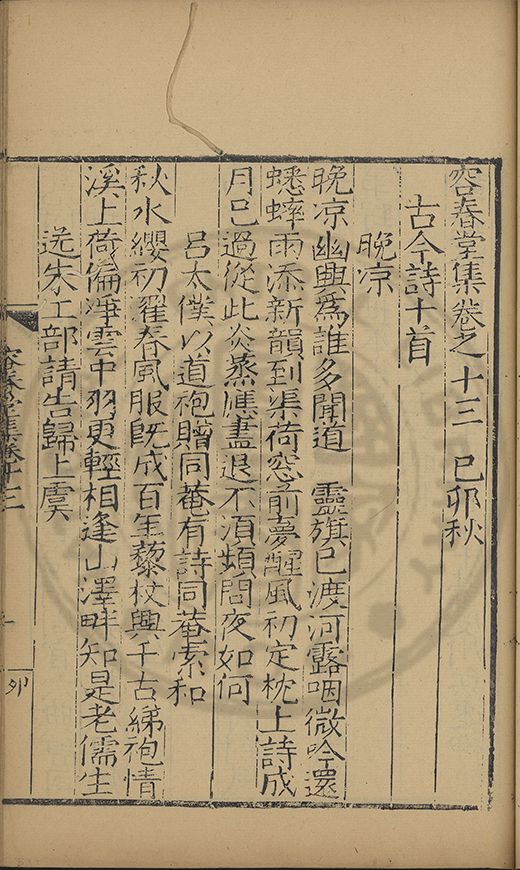 容春堂集卷之十三 己卯秋
古今詩十首
晚凉
晚凉幽興為誰多聞道 靈旗已渡河露咽微吟還
蟋蟀雨添新韻到渠荷窓前夢醒風初定枕上詩成
月已過從此炎蒸漸盡退不須頻問夜如何
呂太僕以道袍贈同菴有詩同菴索和
秋水纓初濯春風服既成百年藜杖興千古綈袍情
溪上荷偏凈雲中羽更輕相逢山澤畔知是老儒生
送朱工部請告歸上虞
容春堂集卷十三
一
卯